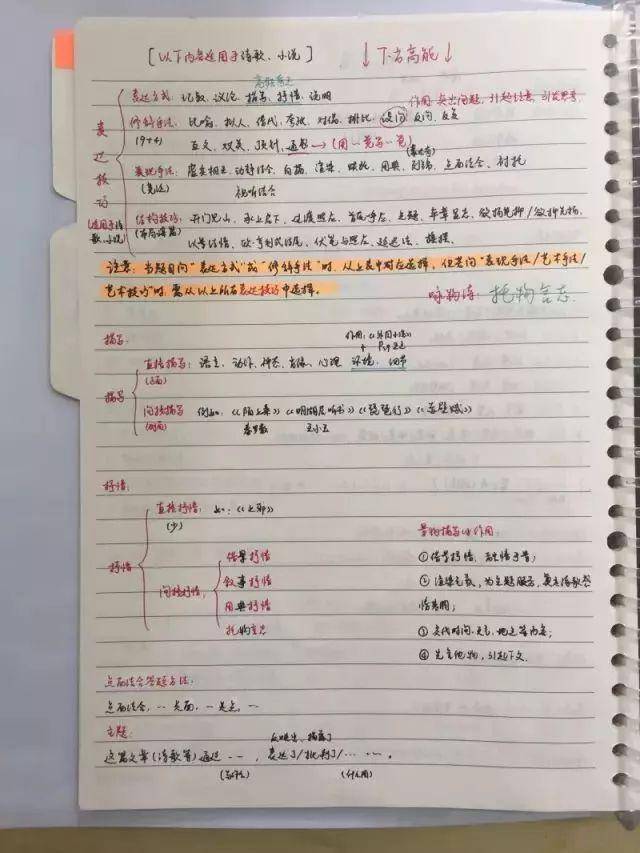 [以下内容适用于诗歌、小说] ↓下方高能↓
高频考点
表达方式：记叙、议论、描写、抒情、说明
作用：突出问题，引起注意，引发思考
修辞手法：比喻、拟人、借代、夸张、对偶、排比、设问、反问、反复
(9+4) 互文、双关、顶针、通感→(用一觉写一觉)
表达技巧
(适用于诗歌、小说)
表现手法：虚实相生、动静结合、白描、渲染、烘托、用典、点面结合、衬托
视听结合
结构技巧：开门见山、承上启下、过渡照应、首尾呼应、点题、卒章显志、欲扬先抑/欲抑先扬、
以景结情、伏笔与照应、铺排、
注意：当题目问"表达方式"或"修辞手法"时，从上表中对应选择，但若问"表现手法/艺术手法/
艺术技巧"时，需从以上所有表达技巧中选择。
咏物诗：托物言志
描写：
作用：
直接描写：语言、动作、神态、肖像、心理、环境、细节
(正面)
描写
间接描写 例如：《陌上桑》《明湖居听书》《琵琶行》《赤壁赋》
(侧面) 秦罗敷 王小玉
抒情：
直接抒情：如：《上邪》
(少)
景物描写的作用：
抒情
间接抒情：
借景抒情
①借景抒情，融情于景；
叙事抒情
②渲染气氛，为主题服务，奠定诗歌感
用典抒情
情基调；
托物言志
③交代时间、地点等内容；
④先言他物，引起下文。
点面结合答题方法：
点面结合，…先面，…是点，…
主题：
反映出、揭露了
这篇文章(诗歌等)通过……，表达了/批判了/……。